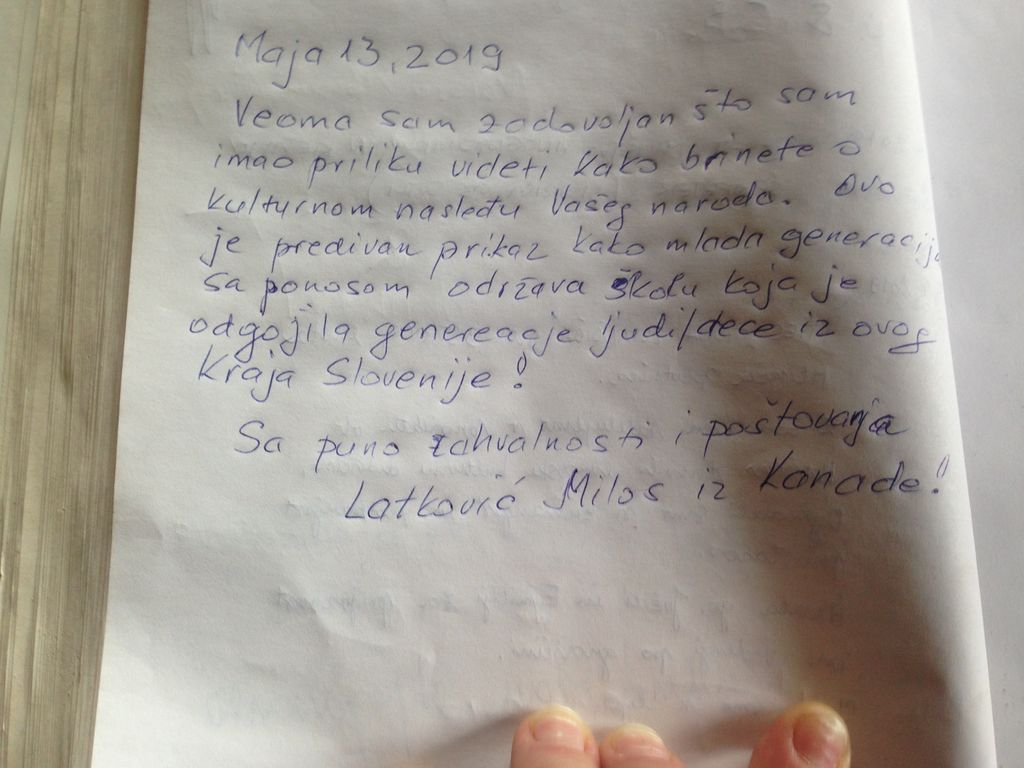 Maja 13, 2019
Veoma sam zadovoljan što sam
imao priliku videti kako brinete o
kulturnom nasleđu Vašeg naroda. Ovo
je predivan prikaz kako mlada generacija
sa ponosom održava školu koja je
odgojila genereacje ljudi/dece iz ovog
Kraja Slovenije!
Sa puno zahvalnosti i poštovanja
Latković Milos iz Kanade!